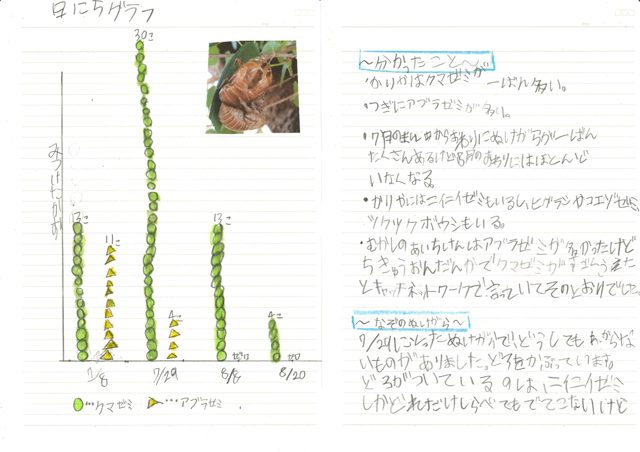 日にちグラフ
30こ
みつけたかず
13こ
11こ
4こ
13こ
ゼロ
4こ
ゼロ
7/29
8/8
8/20
…クマゼミ
…アブラゼミ
～分かったこと～
・かりやはクマゼミが一ばん多い。
・つぎにアブラゼミが多い。
・7月の
たくさんあるけど8月のおわりにはほとんど
いなくなる。
・かりやにはニイニイゼミもいるし、ヒグラシやコエゾゼミ、
ツクツクボウシもいる。
・むかしのあいちけんはアブラゼミが多かったけど
ちきゅうおんだんかでクマゼミが
とキャッチネットワークで言っていてそのとおりでした。
～なぞのぬけがら～
7/29にとったぬけがらで、どうしてもわからな
いものがありました。どろをかぶっています。
どろがついているのは、ニイニイゼミ
しかどれだけしらべてもでてこないけど